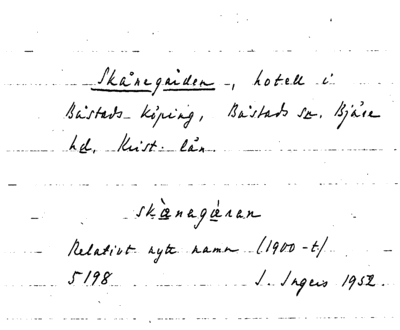 Skånegården, hotell i
Båstads köping, Båstads sn. Bjäre
hd. Krist. län.
skånagåran
Relativt nytt namn (1900-t)
5198 I. Ingers 1952.